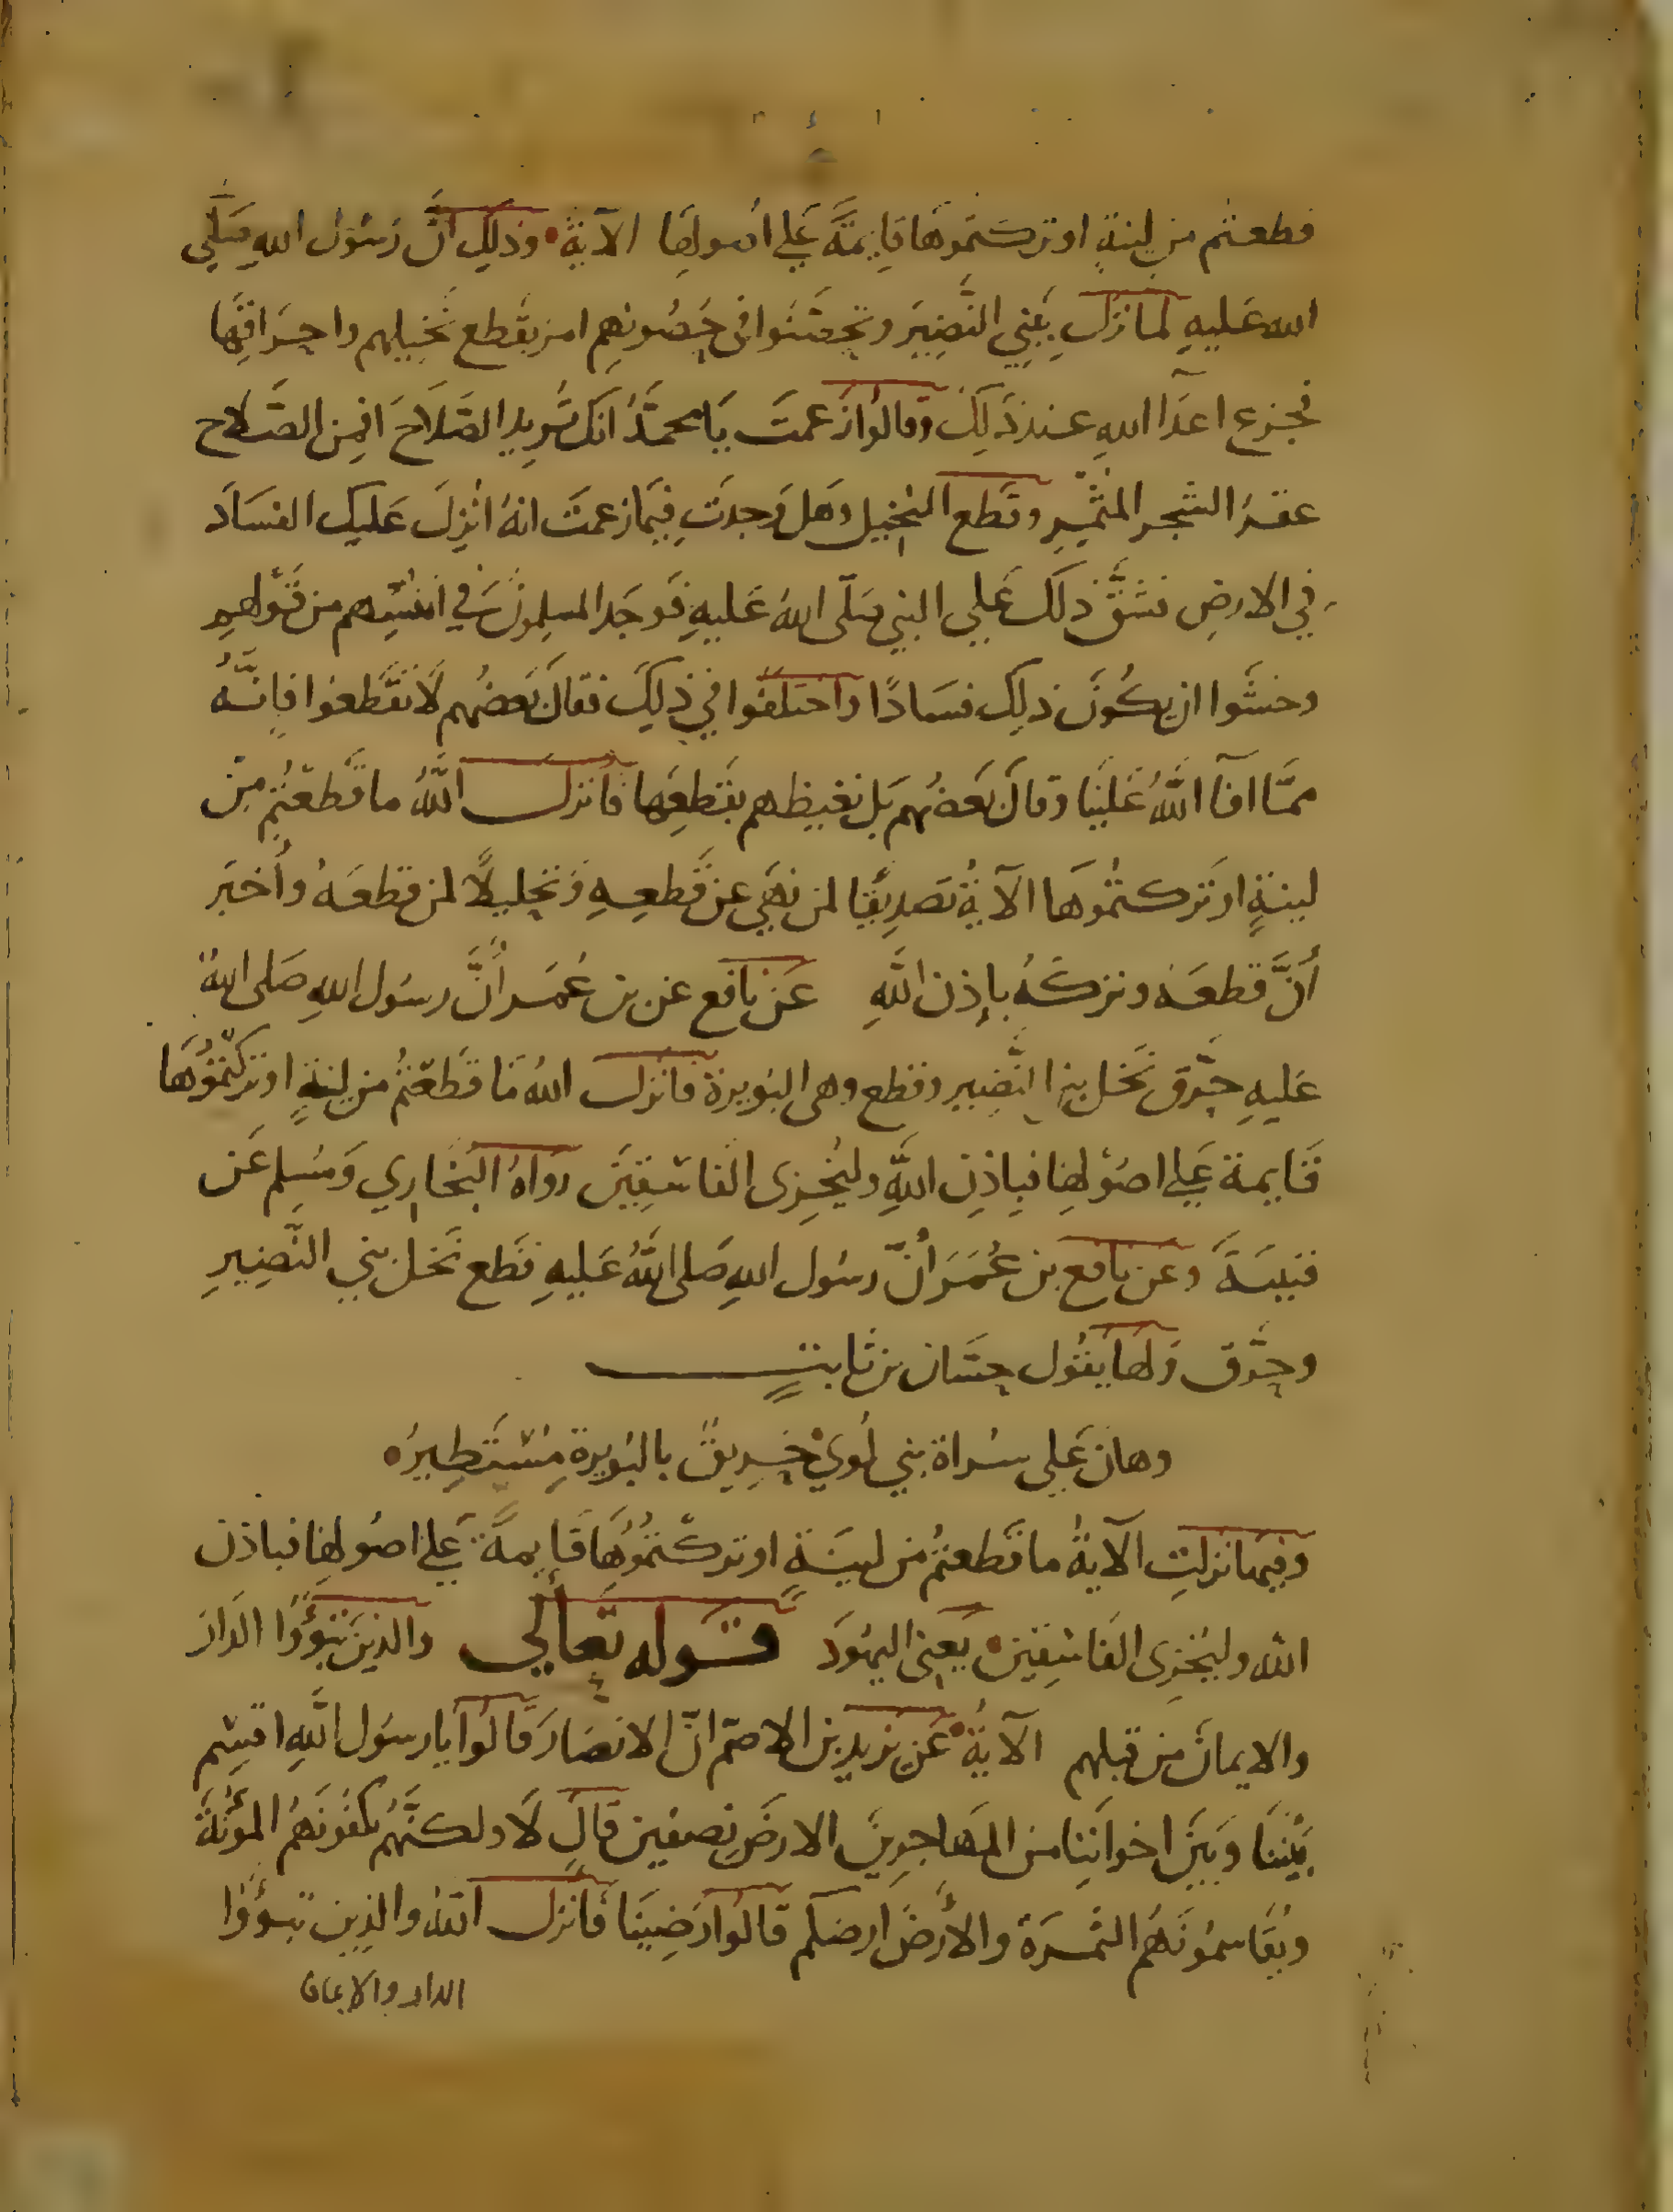 قطعتم من لينةٍ او تركتموها قايمةً على اصولها الآية وذلك انَّ رسُول اللهِ صَلّى
الله عَليهِ لما نزلَ ببَني النَّضِيَر وتحصَّنوا في حُصُونهِم امر بقَطع نَخيلهم واحِرَاقِها
فجزع اعدَآ اللهِ عند ذَلِكَ وقالوا زعمتَ يَا محمَّدُ انك تُريد الصَّلاَحَ افمِن الصَّلاح
عقرُ الشجر المثمِر وقَطع النخِيل وهَل وَجدتَ فيمَا زعمتَ انهُ انْزِلَ عَليك الفسَادَ
في الارضِ فشقَّ ذلكَ عَلي النبي صَلّى اللهُ عَليهِ فَوجَد المسلِمونَ في انفُسِهم من قَوْلهِمِ
وخشَوا ان يكُونَ ذلِك فسَادًا واختلَفوا في ذلِكَ فقالَ بَعضُهم لاَ تقَطعوا فاِنَّهُ
ممَّا افآ اللَّهُ عَليْنَا وقالَ بَعضُهم بَل نغيظهم بقَطعِهَا فأنزل اللَّهُ ما قَطعْتُم مِن
لينةٍ او تَركتُمُوهَا الآيةُ تصَدِيقا لمن نهَي عن قَطعِهِ وَتحليلًا لمن قطعَهُ وأخبَر
أنَّ قطعَهُ وتركَهُ بإِذن اللَّهِ عَن نافع عن بن عُمَر أنَّ رسُول اللهِ صَلى اللهُ
عَليهِ حرَّق نَخل بني النَّضِيرِ وقطع وهى البُويرة فانزل اللهُ مَا قَطعْتمُ من لِينةٍ او تركتُموُهَا
قَايمة عَلي اصُوْلِها فبِاذِن اللَّهِ وليُخِزى الفاسِقِيَن رَوَاهُ البُخاري وَمُسِلم عَن
قتيبَةَ وعن نافع بن عُمَرَ أنّ رسُول اللهِ صَلى اللَّهُ عَليهِ قَطع نَخل بني النَّضِيرِ
وحرَّق وَلهَا يقُول حسَّان بن ثابتٍ
وهانَ عَلى سُراة بني لُويٍ حَريقٌ بالبُويرة مُسْتَطِيرُ
وفيهَا نزلتِ الآيةُ ما قَطعتمُ من لينَةٍ او تركتُمُوُهَا قَايمةً عَلي اصُولِها فباذن
الله وليُخزِى الفَاسِقِيَن يَعني اليهُودَ قوله تعَالي والذِينَ تبَوَّؤُا الدَارَ
والايمانَ من قبلهم الآيةُ عَن يزيد بن الاصَم انّ الانصَارَ قَالوُا يا رسُول اللَّهِ اقسِم
بَيْننَا وَبَيَن اخوانِنَا من المهَاجِرينَ الارضَ نِصفين قَالَ لاَ ولكنَّهُم تكفُونَهُم المؤُنَةَ
ويُقَاسمُونَهُم الثمَرَة والأرْضَ ارضكم قَالوُا رَضِينَا فأنزل اللهُ والذِين تبوَّؤُا
الدار والايمان